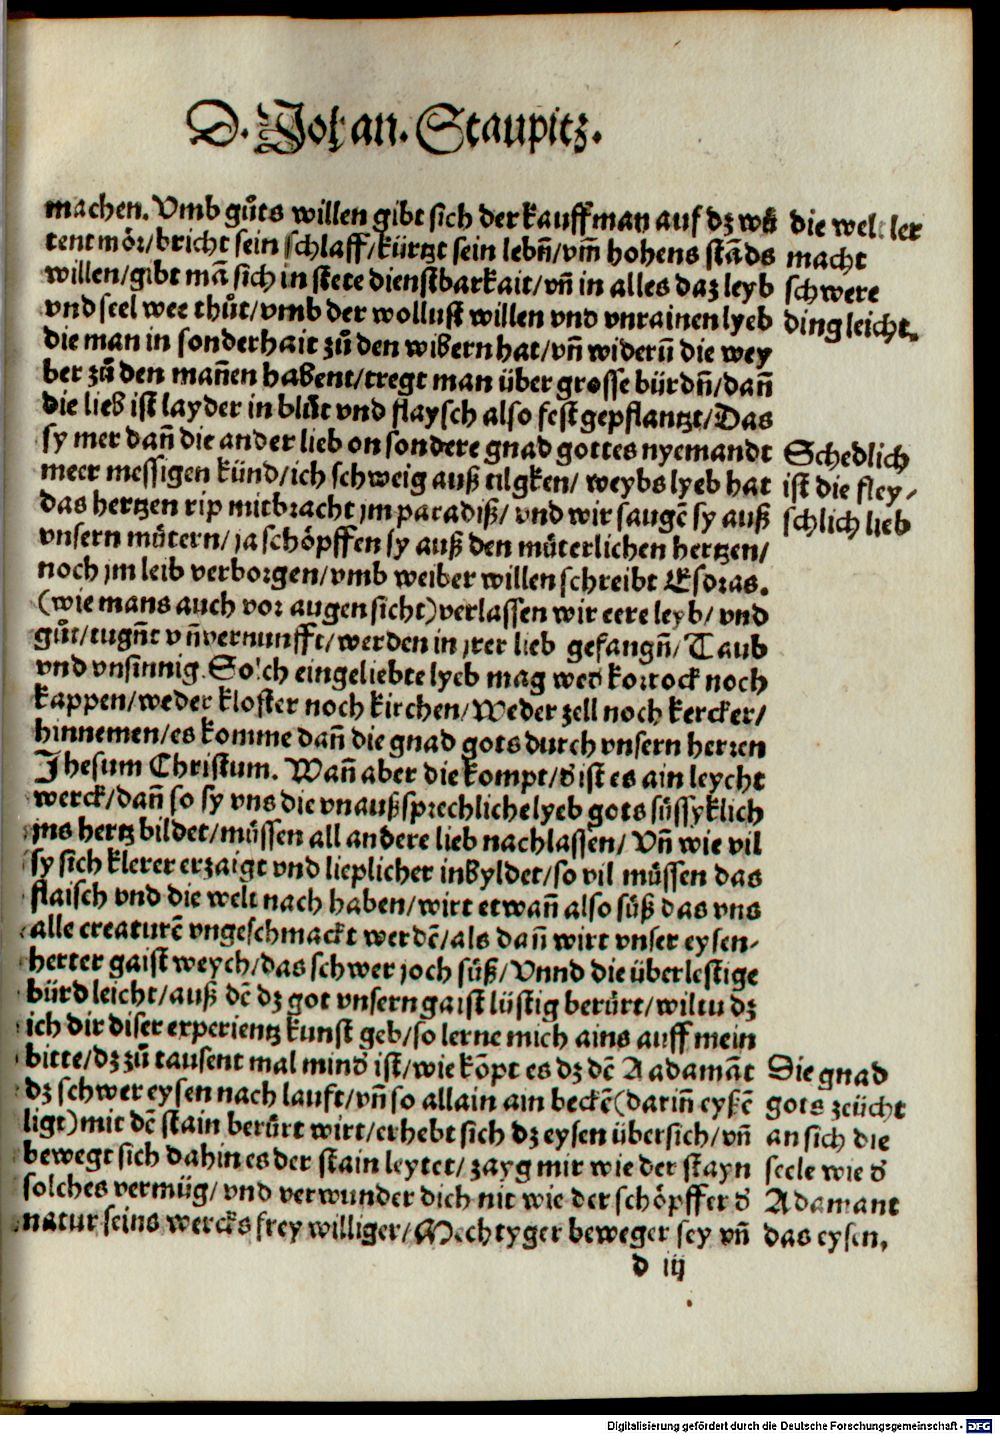 D. Johan. Staupitz.
machen. Vmb gůts willen gibt sich der kauffman auf dz wů
tent mör/bricht sein schlaff/kürtzt sein lebn̄/vm̄ hohens stāds
willen/gibt mā sich in stete dienstbarkait/vn̄ in alles daz leyb
vnd seel wee thůt/vmb der wollust willen vnd vnrainen lyeb
die man in sonderhait zů den wibern hat/vn̄ widerū die wey
ber zů den man̄en habent/tregt man über grosse bürdn̄/dan̄
die lieb ist layder in blůt vnd flaysch also fest gepflantzt/Das
sy mer dan̄ die ander lieb on sondere gnad gottes nyemandt
meer messigen künd/ich schweig auß tilgken/ weybs lyeb hat
das hertzen rip mitbracht jm paradiß/ vnd wir saugē sy auß
vnsern můtern/ ja schöpffen sy auß den můterlichen hertzen/
noch jm leib verborgen/vmb weiber willen schreibt Esdras.
(wie mans auch vor augen sicht)verlassen wir eere leyb/ vnd
gůt/tugn̄t vn̄ vernunfft/werden in jrer lieb gefangn̄/ Taub
vnd vnsinnig. Solch eingeliebte lyeb mag wed̄ korrock noch
kappen/weder kloster noch kirchen/Weder zell noch kercker/
hinnemen/es komme dan̄ die gnad gots durch vnsern herren
Jhesum Christum. Wan̄ aber die kompt/d̄ ist es ain leycht
werck/dan̄ so sy vns die vnaußsprechliche lyeb gots süssyklich
jns hertz bildet/müssen all andere lieb nachlassen/ Vn̄ wie vil
sy sich klerer erzaigt vnd lieplicher inbyldet/so vil müssen das
flaisch vnd die welt nach haben/wirt etwan̄ also süß das vns
alle creaturē vngeschmackt werdē/als dan̄ wirt vnser eysen-
herter gaist weych/das schwer joch süß/Vnnd die überlestige
bürd leicht/auß dē dz got vnsern gaist lüstig berůrt/wiltu dz
ich dir diser experientz kunst geb/so lerne mich ains auff mein
bitte/dz zů tausent mal mind̄ ist/wie kōpt es dz dē Aadamāt
dz schwer eysen nach lauft/vn̄ so allain ain beckē(darin̄ eyßē
ligt)mit dē stain berůrt wirt/erhebt sich dz eysen übersich/vn̄
bewegt sich dahin es der stain leytet/ zayg mir wie der stayn
solches vermüg/ vnd verwunder dich nit wie der schöpffer d̄
natur seins wercks frey williger/Mechtyger beweger sey vn̄
d iij
die welt ler
macht
schwere
ding leicht.
Schedlich
ist die fley-
schlich lieb
Die gnad
gots zeücht
an sich die
seele wie d̄
Adamant
das eysen,
Digitalisierung gefördert durch die Deutsche Forschungsgemeinschaft - DFG